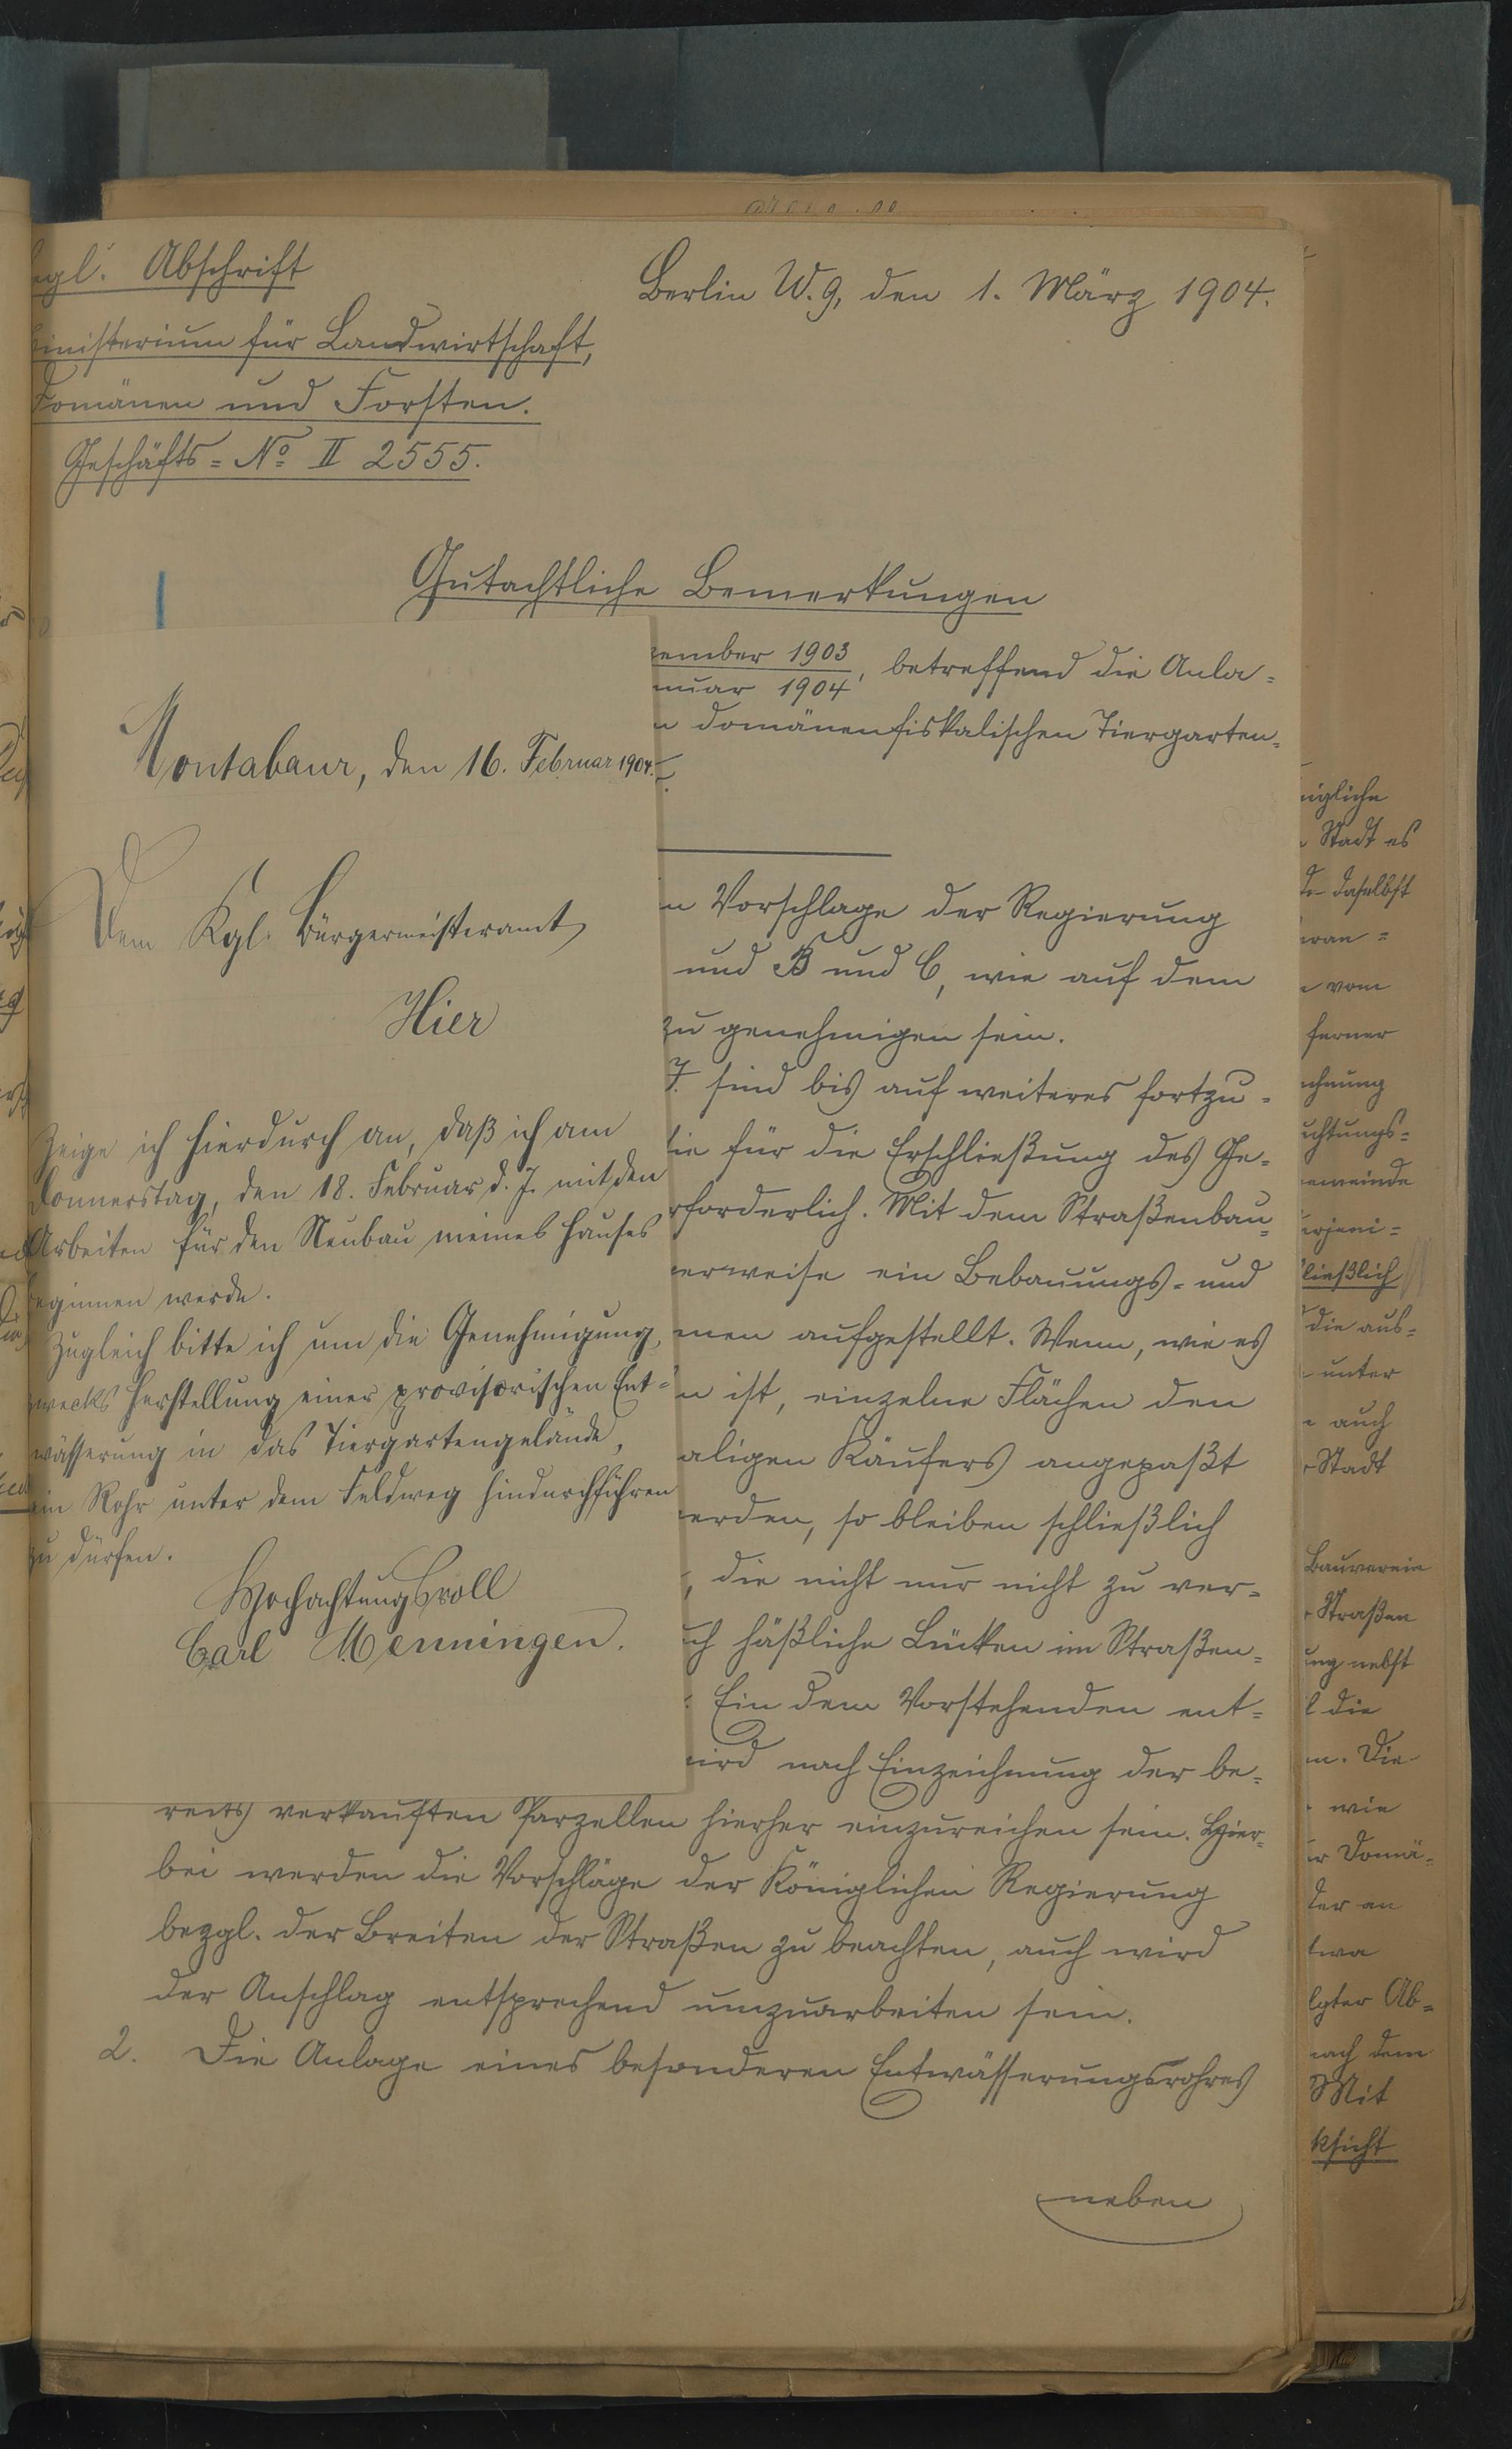 egl. Abschrift
Berlin W. 9, den 1. März 1904.
inisterium für Landwirtschaft,
Domänen und Forsten.
Geschäfts=No II 2555.
Gutachtliche Bemerkungen
zember 1903
nuar 1904, betreffend die Anla=
n domänenfiskalischen Tiergarten=
Montabaur, den 16. Februar 1904.
Dem Kgl. Bürgermeisteramt
Hier
Zeige ich hierdurch an, daß ich am
Donnerstag, den 18. Februar d. J. mit den
Arbeiten für den Neubau meines Hauses
eginnen werde.
Zugleich bitte ich um die Genehmigung,
zwecks Herstellung einer provisorischen Ent=
wässerung in das Tiergartengelände,
ein Rohr unter dem Feldweg hindurchführen
zu dürfen.
Hochachtungsvoll
Carl Menningen.
n Vorschlage der Regierung
und B und C, wie auf dem
zu genehmigen sein.
J. sind bis auf weiteres fortzu=
ie für die Erschließung des Ge=
rforderlich. Mit dem Straßenbau=
erweise ein Bebauungs= und
men aufgestellt. Wenn, wie es
n ist, einzelne Flächen den
aligen Käufers angepaßt
erden, so bleiben schließlich
, die nicht nur nicht zu ver=
uch häßliche Lücken im Straßen=
Ein dem Vorstehenden ent=
wird nach Einzeichnung der be=
reits verkauften Parzellen hierher einzureichen sein. Hier=
bei werden die Vorschläge der Königlichen Regierung
bezgl. der Breiten der Straßen zu beachten, auch wird
der Anschlag entsprechend umzuarbeiten sein.
2. Die Anlage eines besonderen Entwässerungsrohres
neben
nigliche
Stadt es
daselbst
eran=
vom
ferner
chnung
uchtungs=
emeinde
erjeni=
ließlich
die aus=
unter
auch
Stadt
Bauverein
Straßen
ung nebst
die
n. Die
wie
er Domä=
der an
twa
lgter Ab=
nach dem
Mit
ksicht